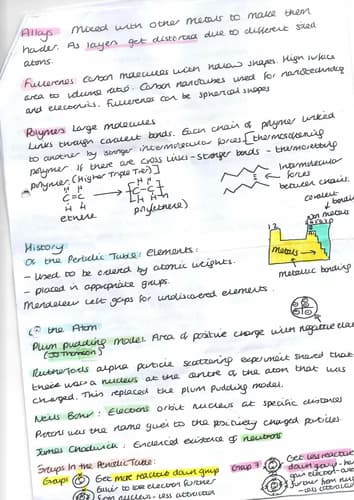 Alloys Mixed with other metals to make them
harder. As layers get distorted due to different sized
atoms.
Fullerenes: Carbon molecules with hollow shapes. High surface
area to volume ratio. Carbon nanotubes used for nanotechnology
and electronics. Fullerenes can be spherical shapes
Polymers Large molecules
links through covalent bonds. Each chain of polymer linked
to another by stronger intermolecular forces [thermosoftening
polymer. If there are cross lines - stronger bonds - thermosetting
polymer. (Higher Triple Tier)]
H H
C=C
H H
ethene
H H
C-C
H H
n
poly(ethene)
intermolecular
forces
between chains.
covalent
bonding
Non metals
1 2
Metals
metallic bonding
History
Of the Periodic Table: Elements:
- used to be ordered by atomic weights.
- placed in appropriate groups.
Mendeleev left gaps for undiscovered elements.
Of the Atom
Plum pudding Model. Area of positive charge with negative
(JJ Thomson)
Rutherfords alpha particle scattering experiment showed that
there was a nucleus at the centre of the atom that was
charged. This replaced the plum pudding model.
Neils Bohr: Electrons orbit nucleus at specific distances
Protons was the name given to the positively charged particles.
James Chadwick: Evidenced existence of neutrons
Groups In the Periodic Table:
Group 1
Get more reactive down group
Easier to lose electron further
from nucleus - less attraction
Group 7
Get less reactive
down group -
gain electron
further from